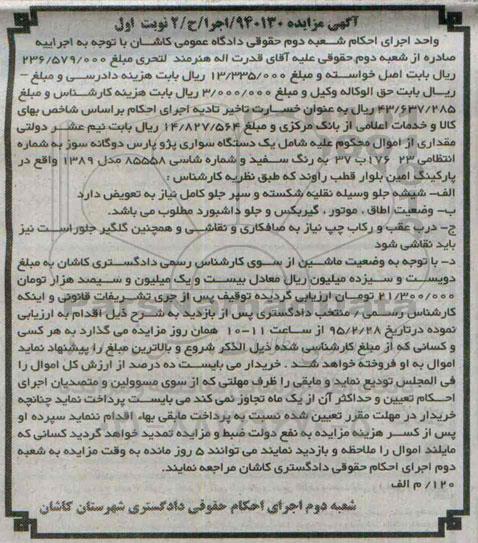 آگهی مزایده ۹۴۰۱۳۰/اجرا/ح/۲ نوبت اول
واحد اجرای احکام شعبه دوم حقوقی دادگاه عمومی کاشان با توجه به اجراییه
صادره از شعبه دوم حقوقی علیه آقای قدرت اله هنرمند لتحری مبلغ ۲۳۶/۵۷۹/۰۰۰
ریال بابت اصل خواسته و مبلغ ۱۳/۳۳۵/۰۰۰ ریال بابت هزینه دادرسی و مبلغ –
ریال بابت حق الوکاله وکیل و مبلغ ۳/۰۰۰/۰۰۰ ریال بابت هزینه کارشناس و مبلغ
۴۳/۶۳۷/۲۸۵ ریال به عنوان خسارت تاخیر تادیه اجرای احکام براساس شاخص بهای
کالا و خدمات اعلامی از بانک مرکزی و مبلغ ۱۴/۸۲۷/۵۶۴ ریال بابت نیم عشر دولتی
مقداری از اموال محکوم علیه شامل یک دستگاه سواری پژو پارس دوگانه سوز به شماره
انتظامی ۲۳ ۱۷۶ب ۳۷ به رنگ سفید و شماره شاسی ۸۵۵۵۸ مدل ۱۳۸۹ واقع در
پارکینگ امین بلوار قطب راوند که طبق نظریه کارشناس :
الف- شیشه جلو وسیله نقلیه شکسته و سپر جلو کامل نیاز به تعویض دارد
ب- وضعیت اطاق ، موتور ، گیربکس و جلو داشبورد مطلوب می باشد.
ج- درب عقب و رکاب چپ نیاز به صافکاری و نقاشی و همچنین گلگیر جلوراست نیز
باید نقاشی شود
د- با توجه به وضعیت ماشین از سوی کارشناس رسمی دادگستری کاشان به مبلغ
دویست و سیزده میلیون ریال معادل بیست و یک میلیون و سیصد هزار تومان
۲۱/۳۰۰/۰۰۰ تومان ارزیابی گردیده توقیف پس از جری تشریفات قانونی و اینکه
کارشناس رسمی / منتخب دادگستری پس از بازدید به شرح ذیل اقدام به ارزیابی
نموده درتاریخ ۹۵/۲/۲۸ از ساعت ۱۱-۱۰ همان روز مزایده می گذارد به هر کسی
و کسانی که از مبلغ کارشناسی شده ذیل الذکر شروع و بالاترین مبلغ را پیشنهاد نماید
اموال به او فروخته خواهد شد . خریدار می بایست ده درصد از ارزش کل اموال را
فی المجلس تودیع نماید و مابقی را ظرف مهلتی که از سوی مسوولین و متصدیان اجرای
احکام تعیین و حداکثر آن از یک ماه تجاوز نمی کند می بایست پرداخت نماید چنانچه
خریدار در مهلت مقرر تعیین شده نسبت به پرداخت مابقی بهاء اقدام ننماید سپرده او
پس از کسر هزینه مزایده به نفع دولت ضبط و مزایده تمدید خواهد گردید کسانی که
مایلند اموال را ملاحظه و بازدید نمایند می توانند ۵ روز مانده به وقت مزایده به شعبه
دوم اجرای احکام حقوقی دادگستری کاشان مراجعه نمایند.
۱۲۰/ م الف
شعبه دوم اجرای احکام حقوقی دادگستری شهرستان کاشان